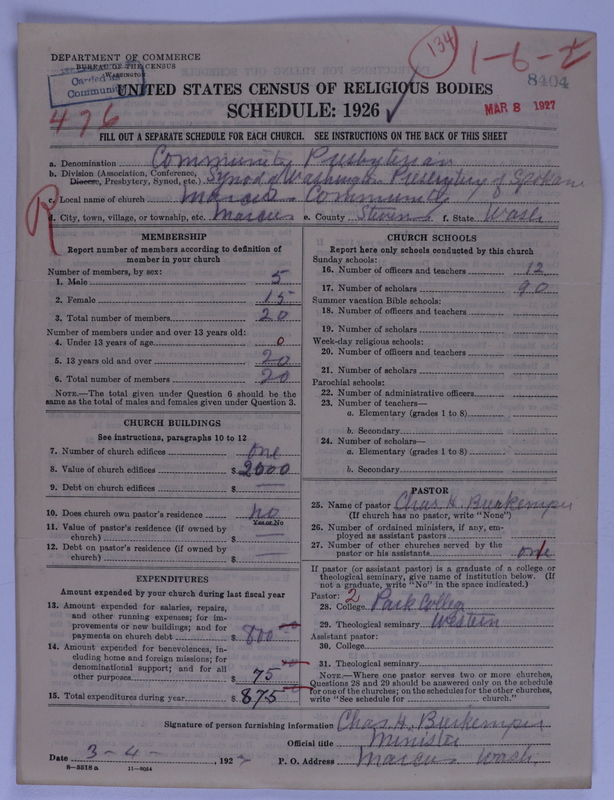 DEPARTMENT OF COMMERCE
BUREAU OF THE CENSUS
WASHINGTON
Carded as
Community
134
1-6-
8404
MAR 8 1927
UNITED STATES CENSUS OF RELIGIOUS BODIES
SCHEDULE: 1926
476
FILL OUT A SEPARATE SCHEDULE FOR EACH CHURCH. SEE INSTRUCTIONS ON THE BACK OF THIS SHEET
R
a. Denomination Community Presbyterian
b. Division (Association, Conference,
Diocese, Presbytery, Synod, etc.) Synod of Washington Presbytery of Spokane
c. Local name of church Marcus Community
d. City, town, village, or township, etc. Marcus e. County Stevens f. State Wash
MEMBERSHIP
Report number of members according to definition of
member in your church
Number of members, by sex:
1. Male 5
2. Female 15
3. Total number of members 20
Number of members under and over 13 years old:
4. Under 13 years of age 0
5. 13 years old and over 20
6. Total number of members 20
NOTE.—The total given under Question 6 should be the
same as the total of males and females given under Question 3.
CHURCH BUILDINGS
See instructions, paragraphs 10 to 12
7. Number of church edifices one
8. Value of church edifices $ 2000
9. Debt on church edifices $ —
10. Does church own pastor's residence? no
Yes or No
11. Value of pastor's residence (if owned by
church) $ —
12. Debt on pastor's residence (if owned by
church) $ —
EXPENDITURES
Amount expended by your church during last fiscal year
13. Amount expended for salaries, repairs,
and other running expenses; for im-
provements or new buildings; and for
payments on church debt $ 800
14. Amount expended for benevolences, in-
cluding home and foreign missions; for
denominational support; and for all
other purposes $ 75
15. Total expenditures during year $ 875
CHURCH SCHOOLS
Report here only schools conducted by this church
Sunday schools:
16. Number of officers and teachers 12
17. Number of scholars 90
Summer vacation Bible schools:
18. Number of officers and teachers
19. Number of scholars
Week-day religious schools:
20. Number of officers and teachers
21. Number of scholars
Parochial schools:
22. Number of administrative officers
23. Number of teachers—
a. Elementary (grades 1 to 8)
b. Secondary
24. Number of scholars—
a. Elementary (grades 1 to 8)
b. Secondary
PASTOR
25. Name of pastor Chas. H. Burkemper
(If church has no pastor, write "None")
26. Number of ordained ministers, if any, em-
ployed as assistant pastors
27. Number of other churches served by the
pastor or his assistants one
If pastor (or assistant pastor) is a graduate of a college or
theological seminary, give name of institution below. (If
not a graduate, write "No" in the space indicated.)
Pastor: 2
28. College Park College
29. Theological seminary Western
Assistant pastor:
30. College
31. Theological seminary
NOTE.—Where one pastor serves two or more churches,
Questions 28 and 29 should be answered only on the schedule
for one of the churches; on the schedules for the other churches,
write "See schedule for church."
Signature of person furnishing information Chas. H. Burkemper
Official title Minister
Date 3-4-, 1927 P. O. Address Marcus Wash.
8-5518 a 11-8054